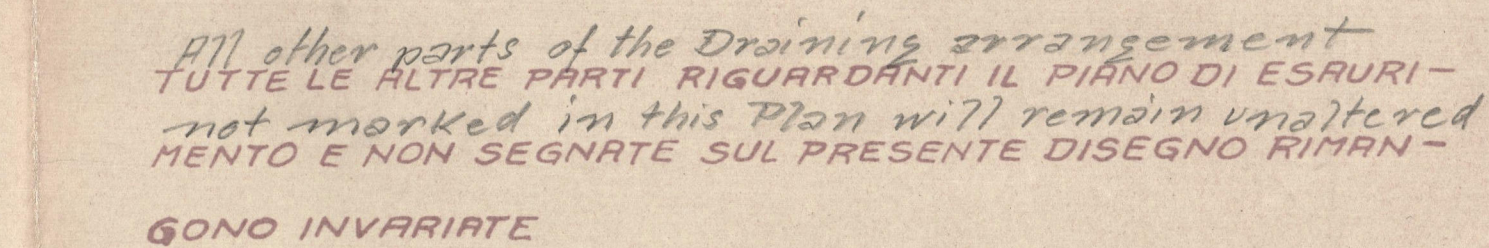 All other parts of the Draining arrangement
TUTTE LE ALTRE PARTI RIGUARDANTI IL PIANO DI ESAURI-
not marked in this Plan will remain unaltered
MENTO E NON SEGNATE SUL PRESENTE DISEGNO RIMAN-
GONO INVARIATE